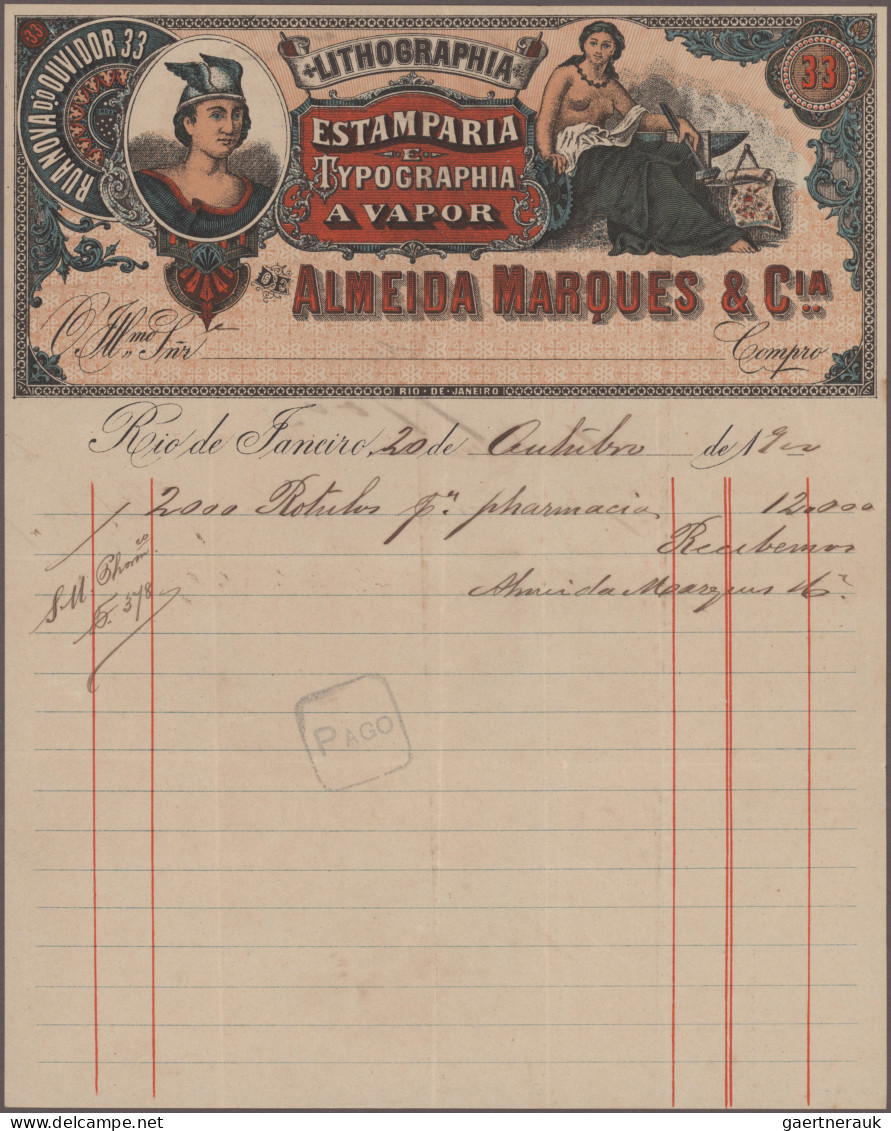 33
RUA NOVA DO OUVIDOR 33
LITHOGRAPHIA
ESTAMPARIA
E
TYPOGRAPHIA
A VAPOR
33
DE ALMEIDA MARQUES & CIA
O Illmo Sñr
Compro
RIO-DE-JANEIRO
Rio de Janeiro, 20 de Outubro de 1900
1 2000 Rotulos pa. pharmacia 120000
Recebemos
Almeida Marques &
S.M. Pharm
F. 378
PAGO
delcampe.net
gaertnerauk